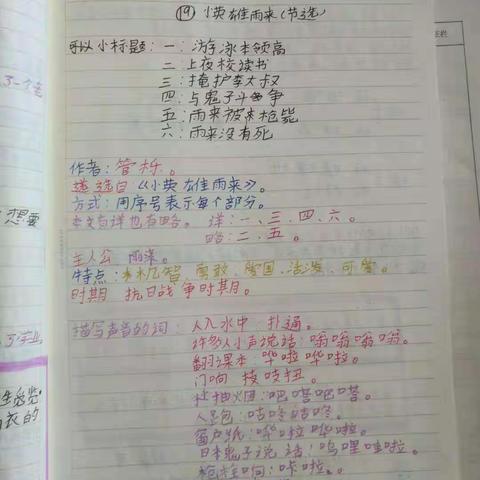 ⑲ 小英雄雨来（节选）
可以小标题：一：游泳本领高
二：上夜校读书
三：掩护李大叔
四：与鬼子斗争
五：雨来被枪毙
六：雨来没有死
作者：管桦。
选自《小英雄雨来》。
方式：用序号表示每个部分。
本文有详也有略。 详：一、三、四、六。
略：二、五。
主人公 雨来。
特点：机智、勇敢、爱国、活泼、可爱。
时期 抗日战争时期。
描写声音的词：人入水中 扑通。
许多人小声说话：嗡嗡嗡嗡。
翻课本：哗啦哗啦。
门响 吱扭。
抽烟：吧嗒吧嗒。
人跑：咕咚咕咚。
窗户纸：哗啦哗啦。
日本鬼子说话：呜哩哇啦。
枪栓响：咔啦。
想要
衣的